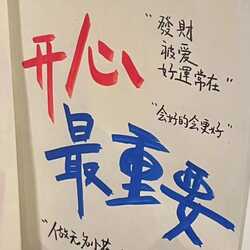 开心
最重要
"發財
被爱
好運常在"
"会好的会更好"
"人做无名小